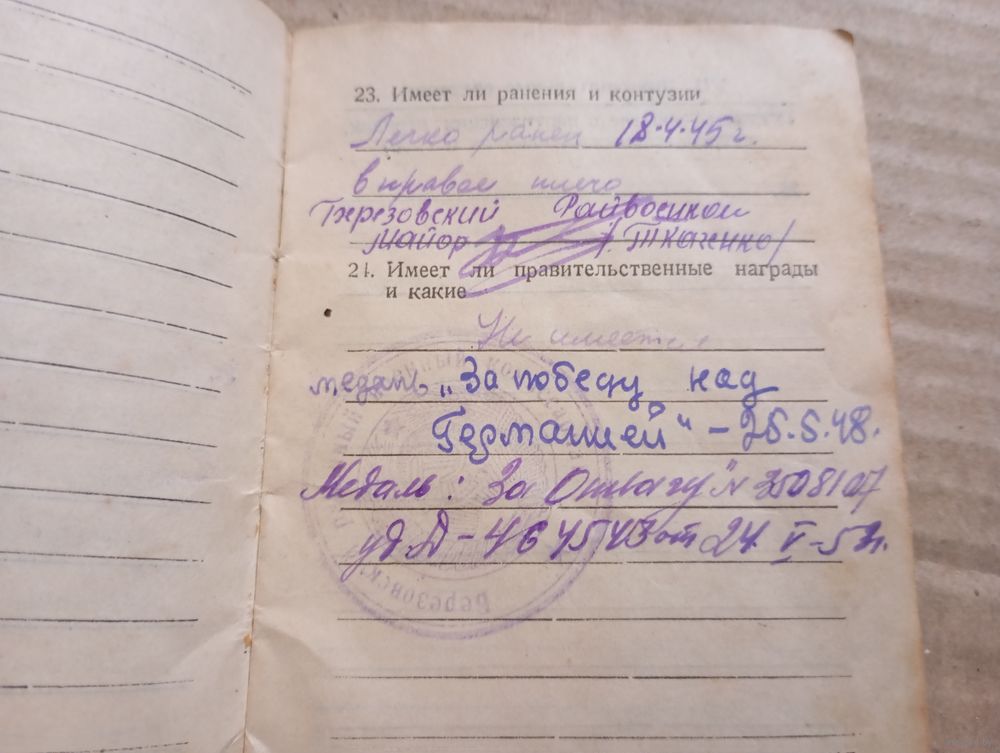 23. Имеет ли ранения и контузии
Легко ранен 18.4.45 г.
в правое плечо
Березовский Райвоенком
Майор /Ткаченко/
24. Имеет ли правительственные награды
и какие
Не имеет
медаль „За победу над
Германией" – 25.5.48.
Медаль: За Отвагу" N 3508107
уд. Д – 464543 от 24. V – 51г.
Березовск